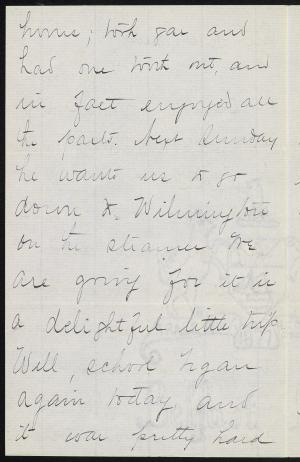 home; took gas and
had one tooth out, and
in fact enjoyed all
the parts. Next Sunday
he wants us to go
down to Wilmington
on the steamer We
are going for it is
a delightful little trip.
Well, school began
again today and
it was pretty hard